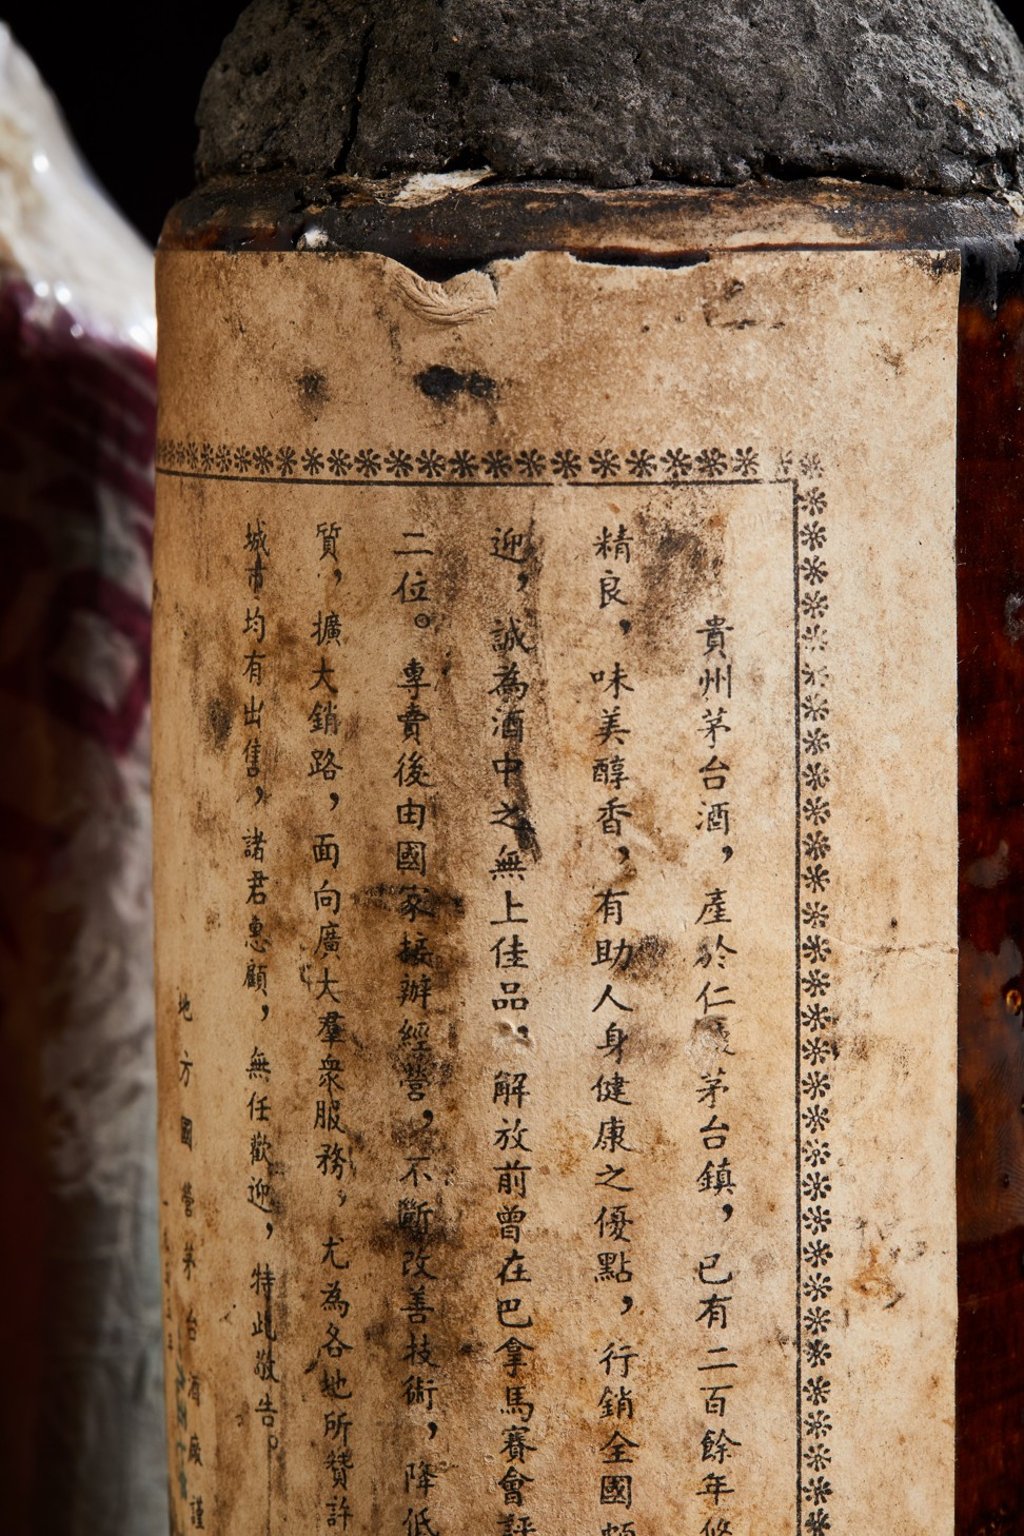 貴州茅台酒，產於仁懷茅台鎮，已有二百餘年悠
精良，味美醇香，有助人身健康之優點，行銷全國頗
迎，誠為酒中之無上佳品，解放前曾在巴拿馬賽會評
二位。專賣後由國家接辦經營，不斷改善技術，降低
質，擴大銷路，面向廣大羣衆服務，尤為各地所贊許
城市均有出售，諸君惠顧，無任歡迎，特此敬告。
地方國營茅台酒廠謹